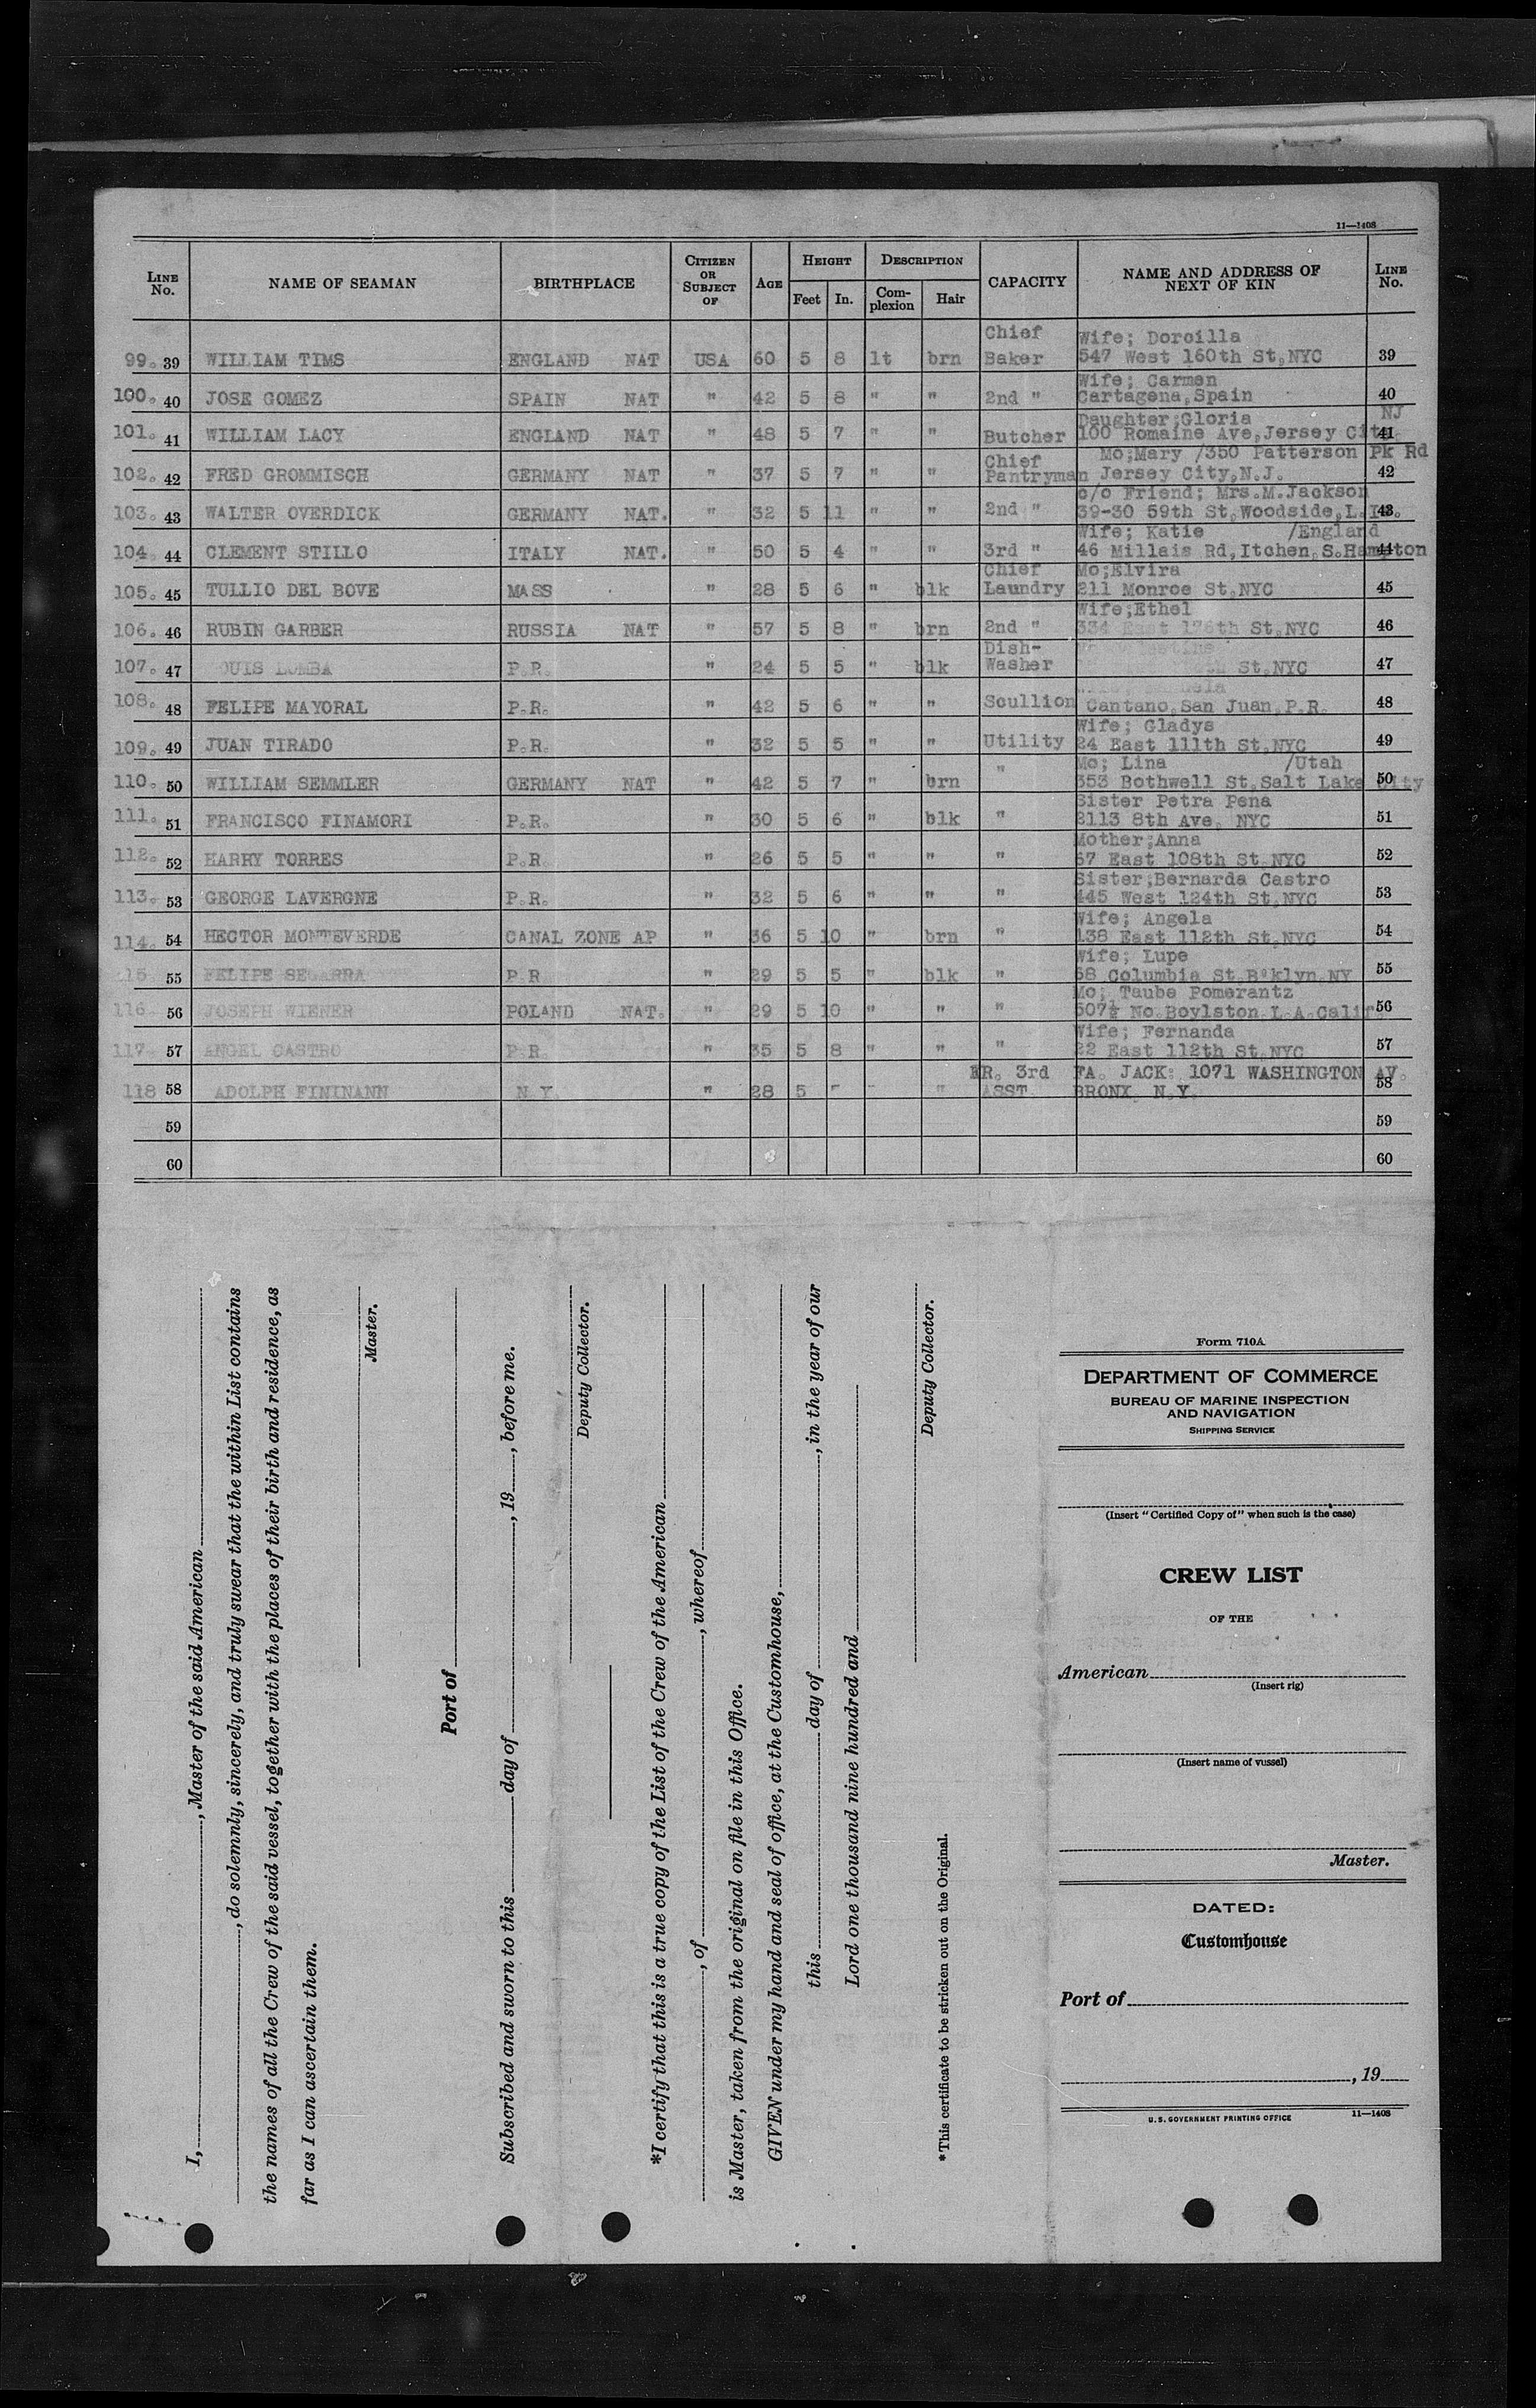 11—1408
LINE No. NAME OF SEAMAN BIRTHPLACE CITIZEN OR SUBJECT OF AGE HEIGHT Feet In. DESCRIPTION Complexion Hair CAPACITY NAME AND ADDRESS OF NEXT OF KIN LINE No.
Chief Wife; Dorcilla
99. 39 WILLIAM TIMS ENGLAND NAT USA 60 5 8 lt brn Baker 547 West 160th St,NYC 39
Wife; Carmen
100. 40 JOSE GOMEZ SPAIN NAT " 42 5 8 " " 2nd " Cartagena,Spain 40
Daughter;Gloria NJ
101. 41 WILLIAM LACY ENGLAND NAT " 48 5 7 " " Butcher 100 Romaine Ave,Jersey City 41
Chief Mo;Mary /350 Patterson Pk Rd
102. 42 FRED GROMMISCH GERMANY NAT " 37 5 7 " " Pantryman Jersey City,N.J. 42
c/o Friend; Mrs.M.Jackson
103. 43 WALTER OVERDICK GERMANY NAT. " 32 5 11 " " 2nd " 39-30 59th St,Woodside,L.I. 43
Wife; Katie /England
104. 44 CLEMENT STILLO ITALY NAT. " 50 5 4 " " 3rd " 46 Millais Rd,Itchen,S.Hampton 44
Chief Mo;Elvira
105. 45 TULLIO DEL BOVE MASS " 28 5 6 " blk Laundry 211 Monroe St,NYC 45
Wife;Ethel
106. 46 RUBIN GARBER RUSSIA NAT " 57 5 8 " brn 2nd " 334 East 176th St,NYC 46
Dish-
107. 47 OUIS LOMBA P.R. " 24 5 5 " blk Washer St,NYC 47
108. 48 FELIPE MAYORAL P.R. " 42 5 6 " " Scullion Cantano,San Juan,P.R. 48
Wife; Gladys
109. 49 JUAN TIRADO P.R. " 32 5 5 " " Utility 24 East 111th St,NYC 49
Mo; Lina /Utah
110. 50 WILLIAM SEMMLER GERMANY NAT " 42 5 7 brn " 353 Bothwell St,Salt Lake City 50
Sister Petra Pena
111. 51 FRANCISCO FINAMORI P.R. " 30 5 6 " blk " 2113 8th Ave, NYC 51
Mother;Anna
112. 52 HARRY TORRES P.R. " 26 5 5 " " " 67 East 108th St NYC 52
Sister;Bernarda Castro
113. 53 GEORGE LAVERGNE P.R. " 32 5 6 " " " 445 West 124th St,NYC 53
Wife; Angela
114. 54 HECTOR MONTEVERDE CANAL ZONE AP " 36 5 10 " brn " 138 East 112th St,NYC 54
Wife; Lupe
115. 55 FELIPE SEGARRA P.R " 29 5 5 " blk " 68 Columbia St B'klyn NY 55
Mo; Taube Pomerantz
116 56 JOSEPH WIENER POLAND NAT. " 29 5 10 " " " 507½ No.Boylston L.A.Calif. 56
Wife; Fernanda
117 57 ANGEL CASTRO P.R. " 35 5 8 " " " 22 East 112th St,NYC 57
JR. 3rd FA. JACK: 1071 WASHINGTON AV.
118 58 ADOLPH FININANN N.Y. " 28 5 " ASST. BRONX N.Y. 58
59 59
60 60
I, , Master of the said American
, do solemnly, sincerely, and truly swear that the within List contains
the names of all the Crew of the said vessel, together with the places of their birth and residence, as
far as I can ascertain them.
Master.
Port of
Subscribed and sworn to this day of , 19 , before me.
Deputy Collector.
*I certify that this is a true copy of the List of the Crew of the American
, of , whereof
is Master, taken from the original on file in this Office.
GIVEN under my hand and seal of office, at the Customhouse,
this day of , in the year of our
Lord one thousand nine hundred and
Deputy Collector.
*This certificate to be stricken out on the Original.
Form 710A
DEPARTMENT OF COMMERCE
BUREAU OF MARINE INSPECTION
AND NAVIGATION
SHIPPING SERVICE
(Insert "Certified Copy of" when such is the case)
CREW LIST
OF THE
American
(Insert rig)
(Insert name of vussel)
Master.
DATED:
Customhouse
Port of
, 19
U.S. GOVERNMENT PRINTING OFFICE 11—1408